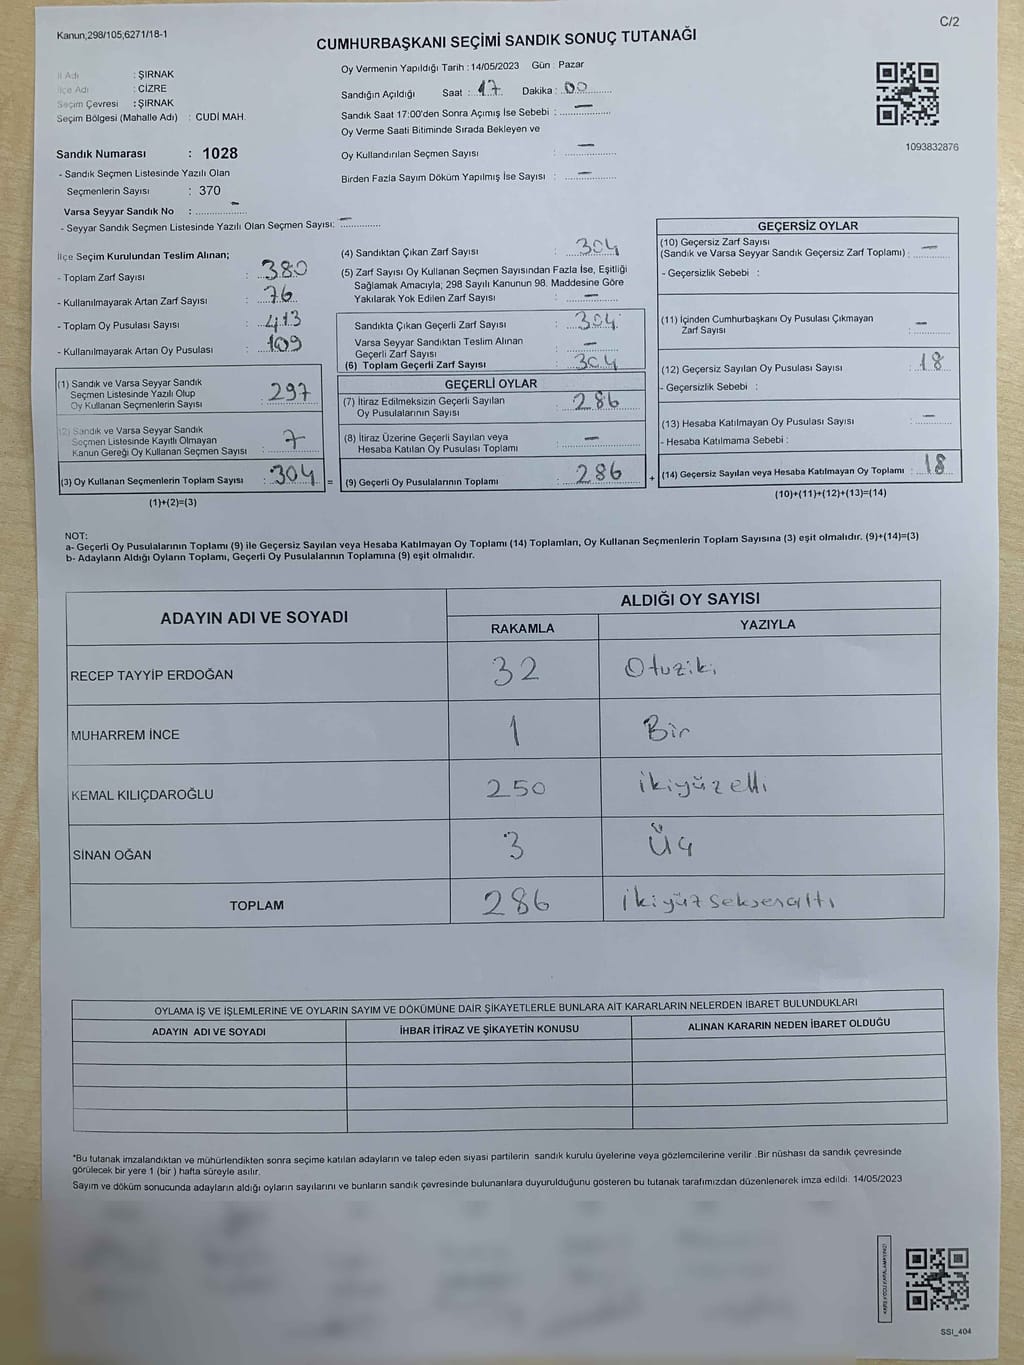 Kanun,298/105,6271/18-1
C/2
CUMHURBAŞKANI SEÇİMİ SANDIK SONUÇ TUTANAĞI
İl Adı : ŞIRNAK
İlçe Adı : CİZRE
Seçim Çevresi : ŞIRNAK
Seçim Bölgesi (Mahalle Adı) : CUDİ MAH.
Sandık Numarası : 1028
- Sandık Seçmen Listesinde Yazılı Olan
Seçmenlerin Sayısı : 370
Varsa Seyyar Sandık No : –
- Seyyar Sandık Seçmen Listesinde Yazılı Olan Seçmen Sayısı: –
Oy Vermenin Yapıldığı Tarih : 14/05/2023 Gün : Pazar
Sandığın Açıldığı Saat : 17 Dakika : 00
Sandık Saat 17:00'den Sonra Açımış İse Sebebi : –
Oy Verme Saati Bitiminde Sırada Bekleyen ve
Oy Kullandırılan Seçmen Sayısı : –
Birden Fazla Sayım Döküm Yapılmış İse Sayısı : –
1093832876
İlçe Seçim Kurulundan Teslim Alınan;
- Toplam Zarf Sayısı : 380
- Kullanılmayarak Artan Zarf Sayısı : 76
- Toplam Oy Pusulası Sayısı : 413
- Kullanılmayarak Artan Oy Pusulası : 109
(1) Sandık ve Varsa Seyyar Sandık
Seçmen Listesinde Yazılı Olup
Oy Kullanan Seçmenlerin Sayısı : 297
(2) Sandık ve Varsa Seyyar Sandık
Seçmen Listesinde Kayıtlı Olmayan
Kanun Gereği Oy Kullanan Seçmen Sayısı : 7
(3) Oy Kullanan Seçmenlerin Toplam Sayısı : 304 =
(1)+(2)=(3)
(4) Sandıktan Çıkan Zarf Sayısı : 304
(5) Zarf Sayısı Oy Kullanan Seçmen Sayısından Fazla İse, Eşitliği
Sağlamak Amacıyla; 298 Sayılı Kanunun 98. Maddesine Göre
Yakılarak Yok Edilen Zarf Sayısı : –
Sandıkta Çıkan Geçerli Zarf Sayısı : 304
Varsa Seyyar Sandıktan Teslim Alınan
Geçerli Zarf Sayısı : –
(6) Toplam Geçerli Zarf Sayısı : 304
GEÇERLİ OYLAR
(7) İtiraz Edilmeksizin Geçerli Sayılan
Oy Pusulalarının Sayısı : 286
(8) İtiraz Üzerine Geçerli Sayılan veya
Hesaba Katılan Oy Pusulası Toplamı : –
(9) Geçerli Oy Pusulalarının Toplamı : 286 +
GEÇERSİZ OYLAR
(10) Geçersiz Zarf Sayısı
(Sandık ve Varsa Seyyar Sandık Geçersiz Zarf Toplamı) : –
- Geçersizlik Sebebi :
(11) İçinden Cumhurbaşkanı Oy Pusulası Çıkmayan
Zarf Sayısı : –
(12) Geçersiz Sayılan Oy Pusulası Sayısı : 18
- Geçersizlik Sebebi :
(13) Hesaba Katılmayan Oy Pusulası Sayısı : –
- Hesaba Katılmama Sebebi :
(14) Geçersiz Sayılan veya Hesaba Katılmayan Oy Toplamı : 18
(10)+(11)+(12)+(13)=(14)
NOT:
a- Geçerli Oy Pusulalarının Toplamı (9) ile Geçersiz Sayılan veya Hesaba Katılmayan Oy Toplamı (14) Toplamları, Oy Kullanan Seçmenlerin Toplam Sayısına (3) eşit olmalıdır. (9)+(14)=(3)
b- Adayların Aldığı Oyların Toplamı, Geçerli Oy Pusulalarının Toplamına (9) eşit olmalıdır.
ADAYIN ADI VE SOYADI
ALDIĞI OY SAYISI
RAKAMLA YAZIYLA
RECEP TAYYİP ERDOĞAN 32 Otuziki
MUHARREM İNCE 1 Bir
KEMAL KILIÇDAROĞLU 250 ikiyüzelli
SİNAN OĞAN 3 Üç
TOPLAM 286 ikiyüzseksenaltı
OYLAMA İŞ VE İŞLEMLERİNE VE OYLARIN SAYIM VE DÖKÜMÜNE DAİR ŞİKAYETLERLE BUNLARA AİT KARARLARIN NELERDEN İBARET BULUNDUKLARI
ADAYIN ADI VE SOYADI İHBAR İTİRAZ VE ŞİKAYETİN KONUSU ALINAN KARARIN NEDEN İBARET OLDUĞU
*Bu tutanak imzalandıktan ve mühürlendikten sonra seçime katılan adayların ve talep eden siyasi partilerin sandık kurulu üyelerine veya gözlemcilerine verilir .Bir nüshası da sandık çevresinde
görülecek bir yere 1 (bir ) hafta süreyle asılır.
Sayım ve döküm sonucunda adayların aldığı oyların sayılarını ve bunların sandık çevresinde bulunanlara duyurulduğunu gösteren bu tutanak tarafımızdan düzenlenerek imza edildi. 14/05/2023
SSI_404